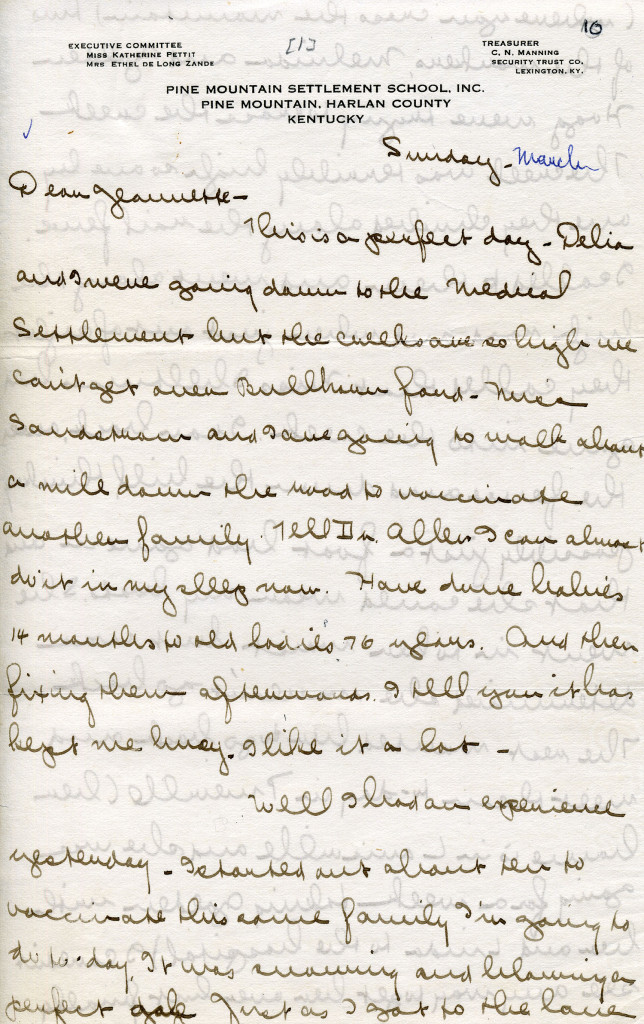 10
[1]
EXECUTIVE COMMITTEE
MISS KATHERINE PETTIT
MRS ETHEL DE LONG ZANDE
TREASURER
C. N. MANNING
SECURITY TRUST CO.
LEXINGTON, KY.
PINE MOUNTAIN SETTLEMENT SCHOOL, INC.
PINE MOUNTAIN, HARLAN COUNTY
KENTUCKY
Sunday - March
Dear Jeannette -
This is a perfect day - Delia
and I were going down to the Medical
Settlement but the creeks are so high we
can't get over Bullhorn ford - Miss
Sandstrom and I are going to walk about
a mile down the road to vaccinate
another family. Tell Dr. Allen I can almost
do it in my sleep now. Have done babies
14 months to old ladies 76 years. And then
fixing them afterwards. I tell you it has
kept me busy. I like it a lot -
Well I had an experience
yesterday - I started out about ten to
vaccinate this same family I'm going to
do to-day. It was snowing and blowing a
perfect gale Just as I got to the lane